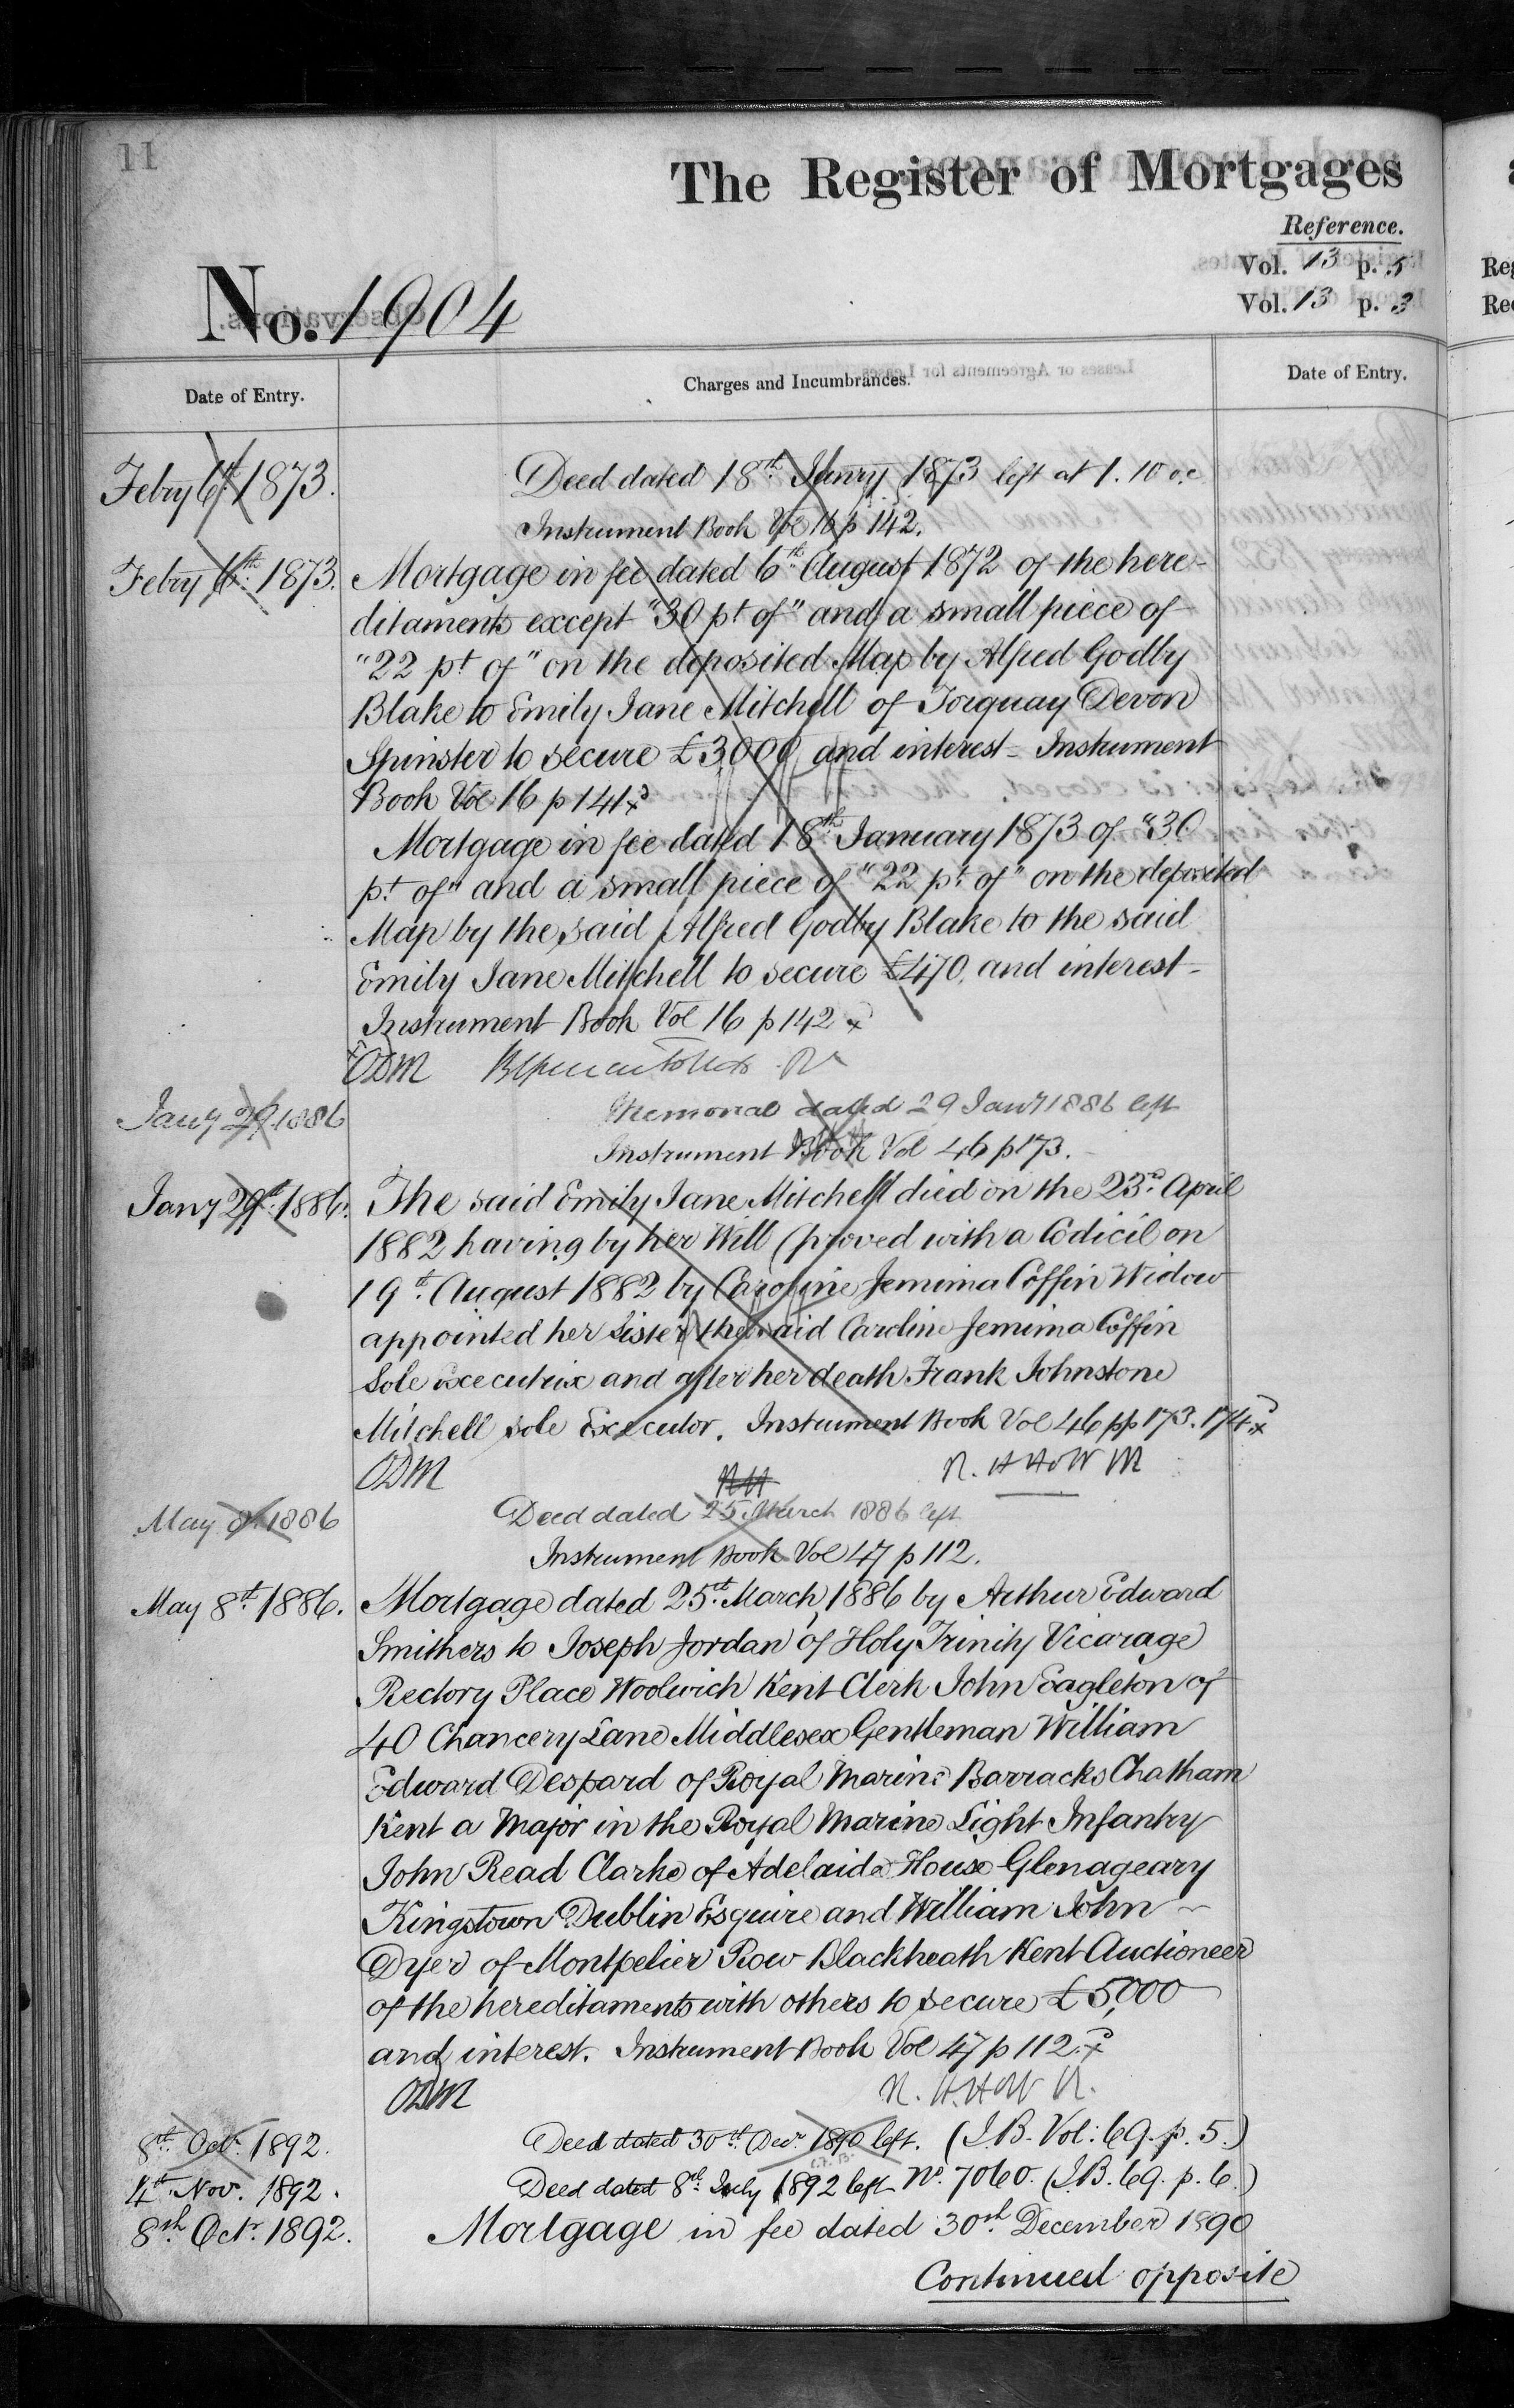 11
The Register of Mortgages
Reference.
Vol. 13 p. 5
Vol. 13 p. 3
No. 1904
Date of Entry.
Charges and Incumbrances.
Date of Entry.
Febry 6th 1873.
Deed dated 18th Janry 1873 left at 1.10 o.c
Instrument Book Vol 16 p 142.
Febry 6th: 1873.
Mortgage in fee dated 6th August 1872 of the here-
ditaments except "30 pt of" and a small piece of
"22 pt of" on the deposited Map by Alfred Godby
Blake to Emily Jane Mitchell of Torquay Devon
Spinster to secure £3000 and interest - Instrument
Book Vol 16 p 141
Mortgage in fee dated 18th January 1873 of "30
pt. of" and a small piece of "22 pt of" on the deposited
Map by the said Alfred Godby Blake to the said
Emily Jane Mitchell to secure £470. and interest -
Instrument Book Vol 16 p 142
ODM
Jany 29 1886
Memorial dated 29 Jany 1886 left
Instrument Book Vol 46 p 173.
Jany 29th. 1886.
The said Emily Jane Mitchell died on the 23rd. April
1882 having by her Will (proved with a Codicil on
19th. August 1882 by Caroline Jemima Coffin Widow
appointed her Sister the said Caroline Jemima Coffin
Sole executrix and after her death Frank Johnstone
Mitchell sole Executor. Instrument Book Vol 46 pp 173. 174
ODM
May 8. 1886
Deed dated 25 March 1886 left
Instrument Book Vol 47 p 112.
May 8th. 1886.
Mortgage dated 25th. March 1886 by Arthur Edward
Smithers to Joseph Jordan of Holy Trinity Vicarage
Rectory Place Woolwich Kent Clerk John Eagleton of
40 Chancery Lane Middlesex Gentleman William
Edward Despard of Royal Marine Barracks Chatham
Kent a Major in the Royal Marine Light Infantry
John Read Clarke of Adelaide House Glenageary
Kingstown Dublin Esquire and William John
Dyer of Montpelier Row Blackheath Kent Auctioneer
of the hereditaments with others to secure £5,000
and interest. Instrument Book Vol 47 p 112.
ODM
8th. Octr. 1892.
Deed dated 30th. Decr. 1890 left. (I.B. Vol: 69. p. 5.)
4th. Nov. 1892.
Deed dated 8th. July 1892 left No. 7060. (I.B. 69. p. 6.)
8th Octr. 1892.
Mortgage in fee dated 30th. December 1890
Continued opposite